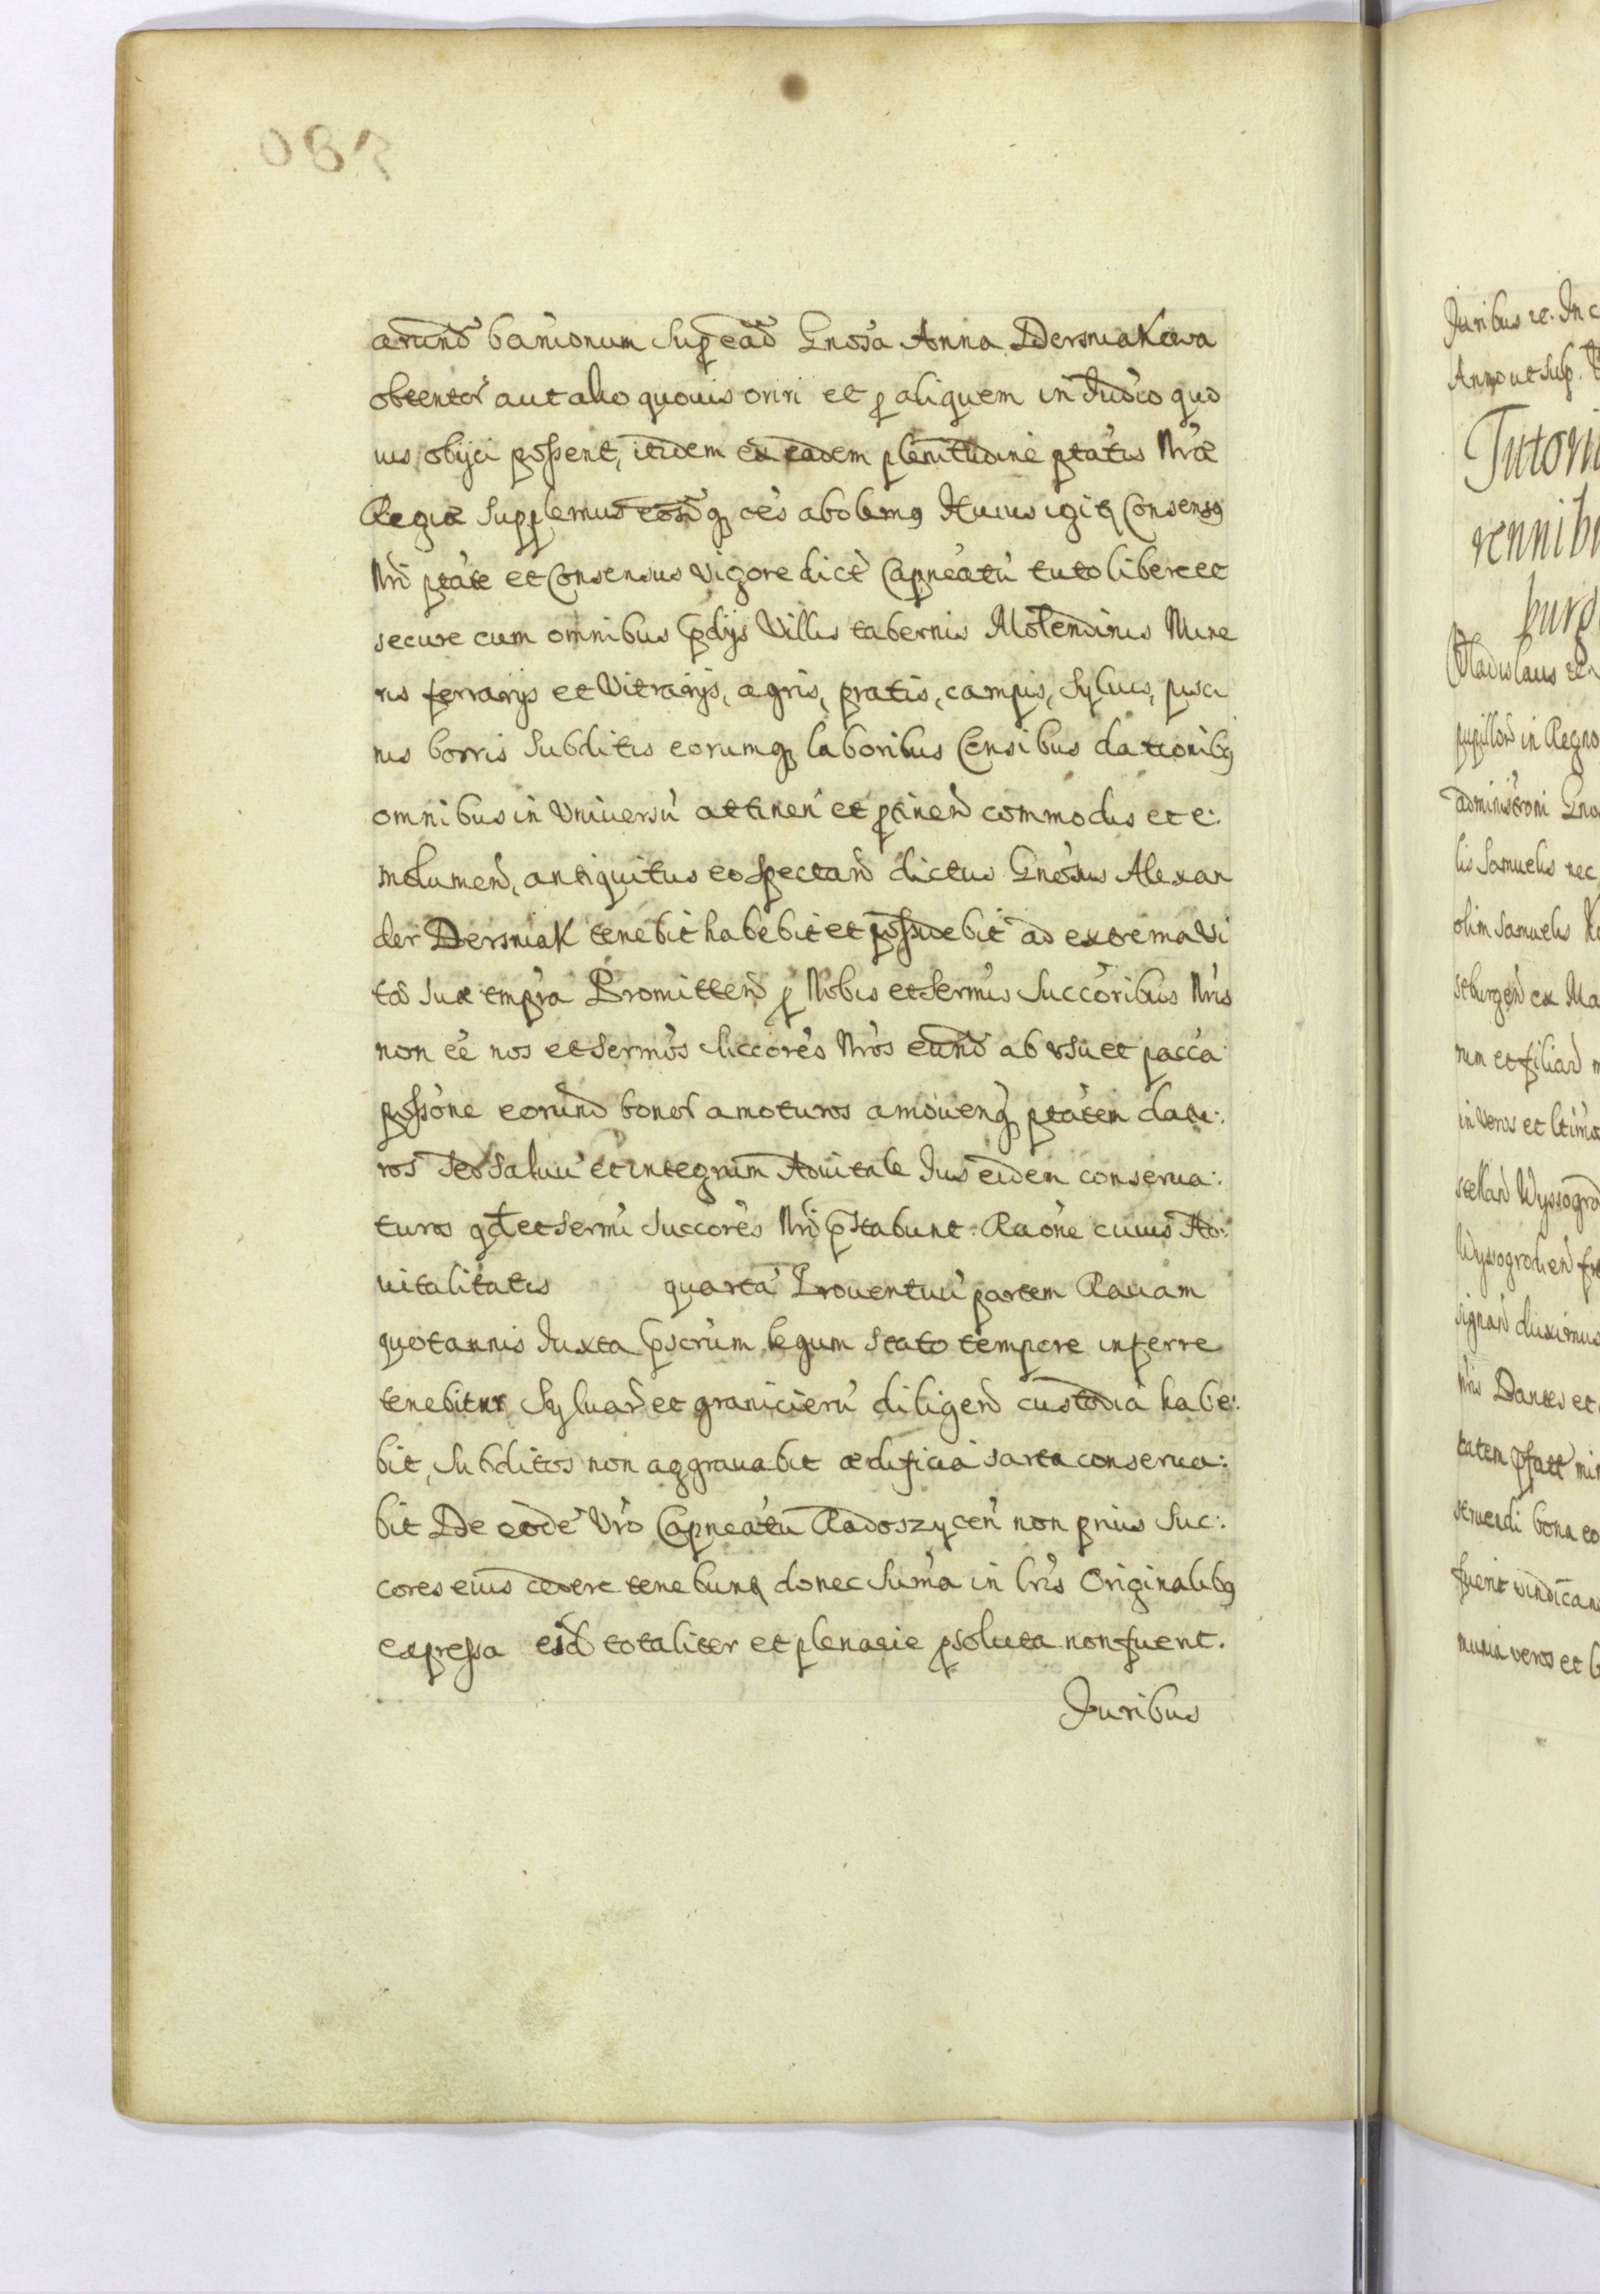 087
arund banionum Sup ead Gnosa Anna Dersniakowa
obtentor aut alio quouis oriri et p aliquem in Iudicio quo
uis obijci possent, itidem ex eadem plenitudine ptatis Nrae
Regiae Supplemus eosq oes abolemq Huius igitq Consensq
Nri ptate et Consensus vigore dicte Capneatu tuto libere et
secure cum omnibus pdijs Villis tabernis Molendinis Mine
ris ferrarijs et Vitrarijs, agris, pratis, campis, Syluis, pisci
nis borris Subditis eorumq laboribus Censibus dationibq
omnibus in Vniuersu attinen et ptinend commodis et e:
molumend, antiquitus eo Spectand dictus Gnosus Alexan
der Dersniak tenebit habebit et possidebit ad extrema vi
tae Suae tmpra Promittend p Nobis et Sermis Succoribus Nris
non ee nos et Sermos Succores Nros eund ab vsu et pacca
possone eorund bonor amoturos amouenq ptatem datu:
ros sed Saluu et integrum Aduitale Ius eidem conserua:
turos qd et Sermi Succores Nri pstabunt. Raone cuius Ad:
uitalitatis quarta Prouentuu partem Rauam
quotannis Iuxta pscrum legum stato tempore inferre
tenebitur Syluar et granicieru diligend custodia habe:
bit, Subditos non aggrauabit aedificia sarta conserua:
bit De eode Vro Capneatu Radoszycen non prius Suc:
cores eius cedere tenebunt donec Suma in lris Originalibq
expressa eisd totaliter et plenarie psoluta non fuerit.
Iuribus
Iuribus re. In c
Anno ut Sup.
Tutori
rennib
burg
Vladislaus
pupillor in Regno
administroni Gno
lis Samuelis nec
olim Samuelis
stburgen ex Ma
num et filiar
in veros et ltimos
stellan Wyssogrod
Wyssogroden
signand duximus
Nris Dantes et
tatem pfatt
seruendi bona eo
fuerit vindican
nuria veros et l